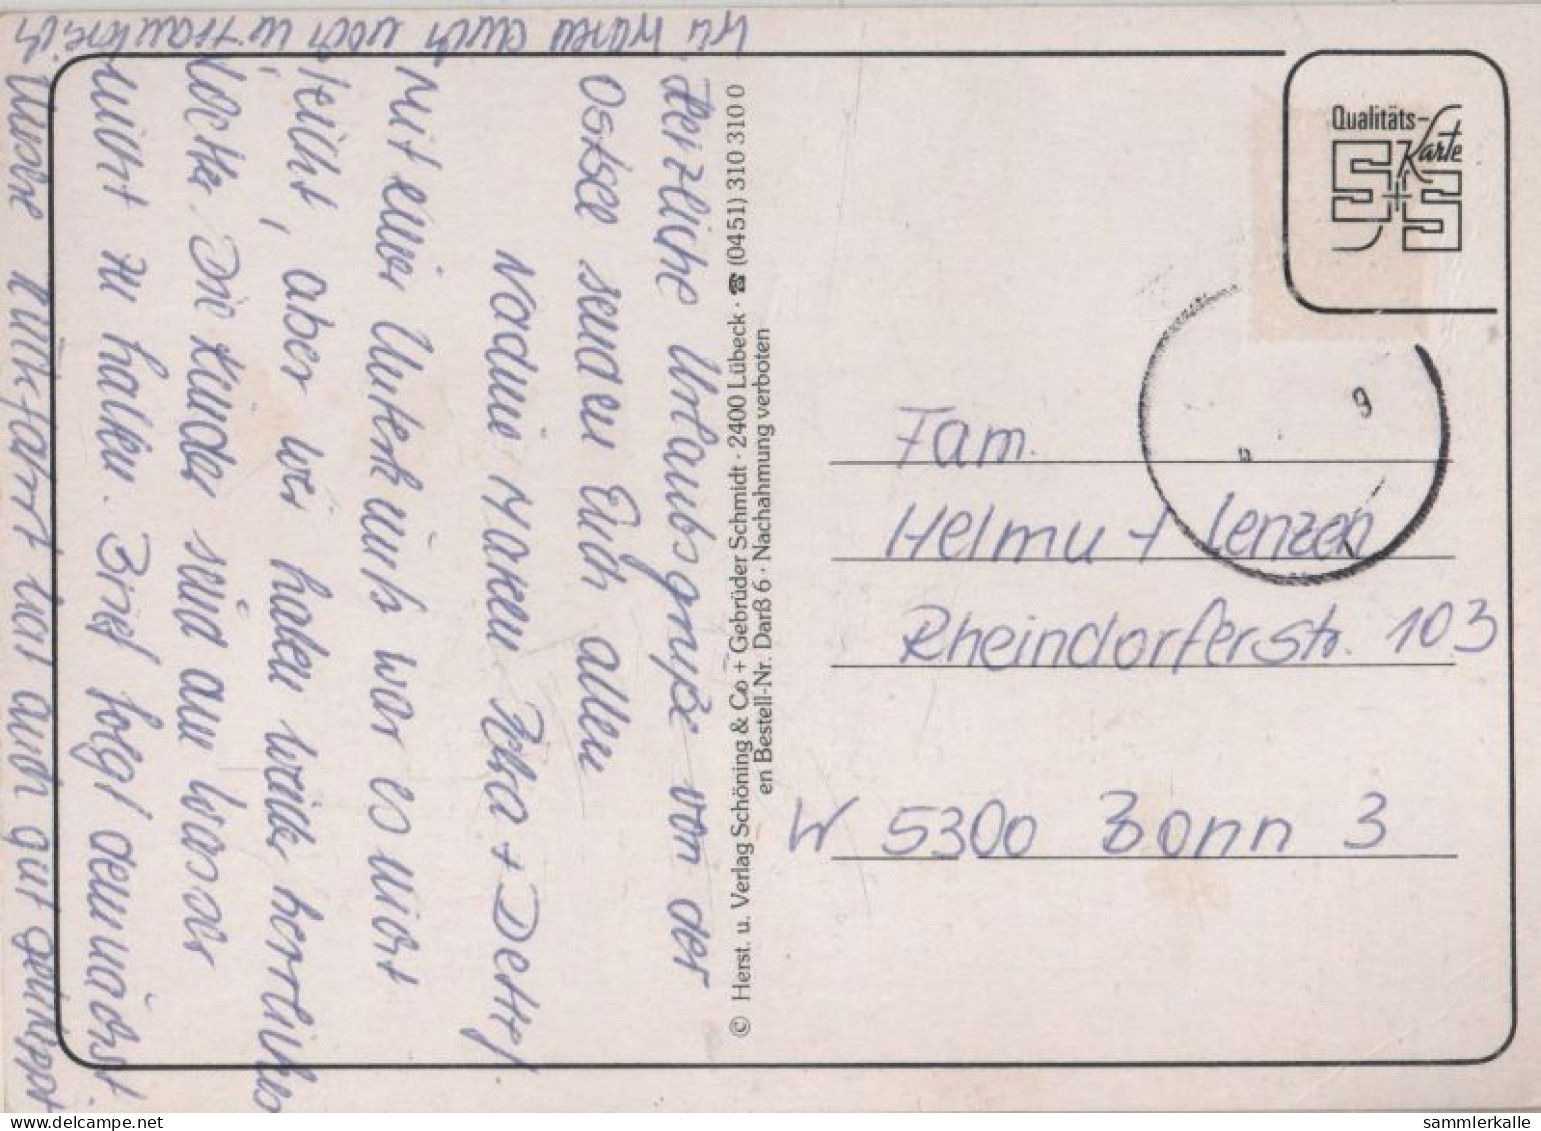 Herzliche Urlaubsgrüße von der
Ostsee senden Euch allen
Nadine Maren
+
Mit einer Unterkunft war es nicht
leicht, aber wir haben
Die Kinder sind am Wasser
nicht zu halten. Brief folgt demnächst.
Unsere Rückfahrt hat auch gut geklappt
Wir waren auch noch in
© Herst. u. Verlag Schöning & Co + Gebrüder Schmidt · 2400 Lübeck · ☎ (0451) 310 310 0
en Bestell-Nr. Darß 6 · Nachahmung verboten
Qualitäts-
Karte
S+S
9
Fam.
Helmut Lenzen
Rheindorferstr. 103
W 5300 Bonn 3
www.delcampe.net
sammlerkalle